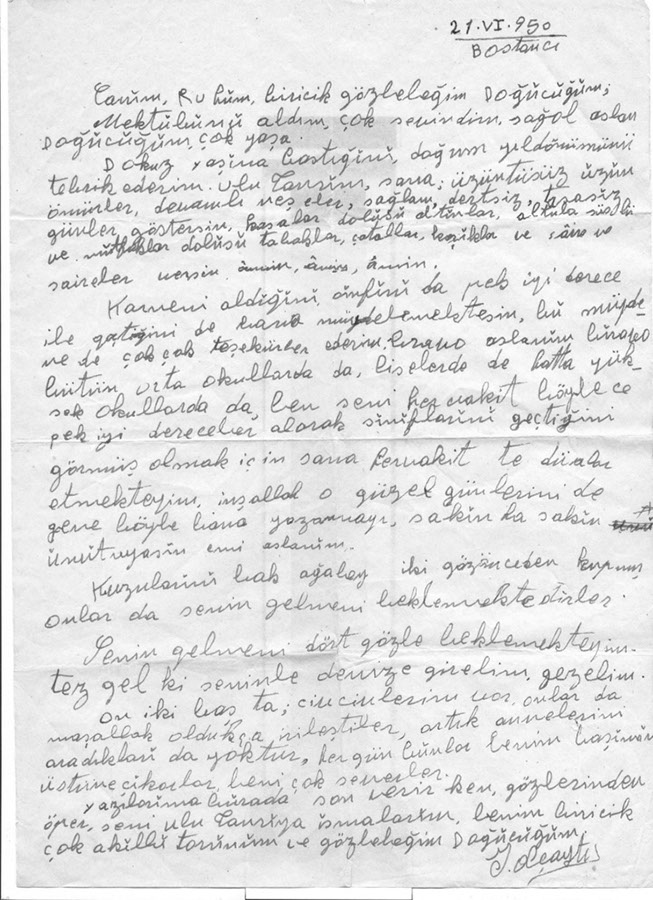 21.VI.950
Bostancı
Canım, Ruhum, biricik gözbebeğim Doğucuğum;
Mektubunu aldım, çok sevindim, sağol aslan
Doğucuğum, çok yaşa.
Dokuz yaşına bastığını, doğum yıldönümünü
tebrik ederim. Ulu Tanrım, sana; üzüntüsüz uzun
ömürler, devamlı neş'eler, sağlam, dertsiz, tasasız
günler, göstersin, kasalar dolusu altunlar,
ve dolusu tabaklar, çatallar, kaşıklar ve sâire ve
saireler versin âmin, âmin, âmin.
Karneni aldığını, sınıfını da pek iyi derece
ile geçtiğini de bana müjdelemektesin, bu müjde-
ne de çok çok teşekkürler ederim, bravo aslanım bravo
bütün orta okullarda da, liselerde de hatta yük-
sek okullarda da ben seni her vakit böylece
pek iyi dereceler alarak sınıflarını geçtiğini
görmüş olmak için sana her vakit te dualar
etmekteyim, inşallah o güzel günlerini de
gene böyle bana yazarmayı, sakın ha sakın
unutmayasın emi aslanım.
Kuzularını bak ağabey iki gözünceden
onlar da senin gelmeni beklemektedirler.
Senin gelmeni dört gözle beklemekteyim.
tez gel ki seninle denize girelim, gezelim.
On iki baş ta; cincinlerim var, onlar da
maşallah oldukça irileştiler, artık annelerini
aradıkları da yoktur, her gün bunlar benim başımın
üstüne çıkarlar, beni çok severler.
Yazılarıma burada son verir ken, gözlerinden
öper, seni ulu Tanrıya ısmarlarım, benim biricik
çok akıllı torunum ve gözbebeğim Doğucuğum